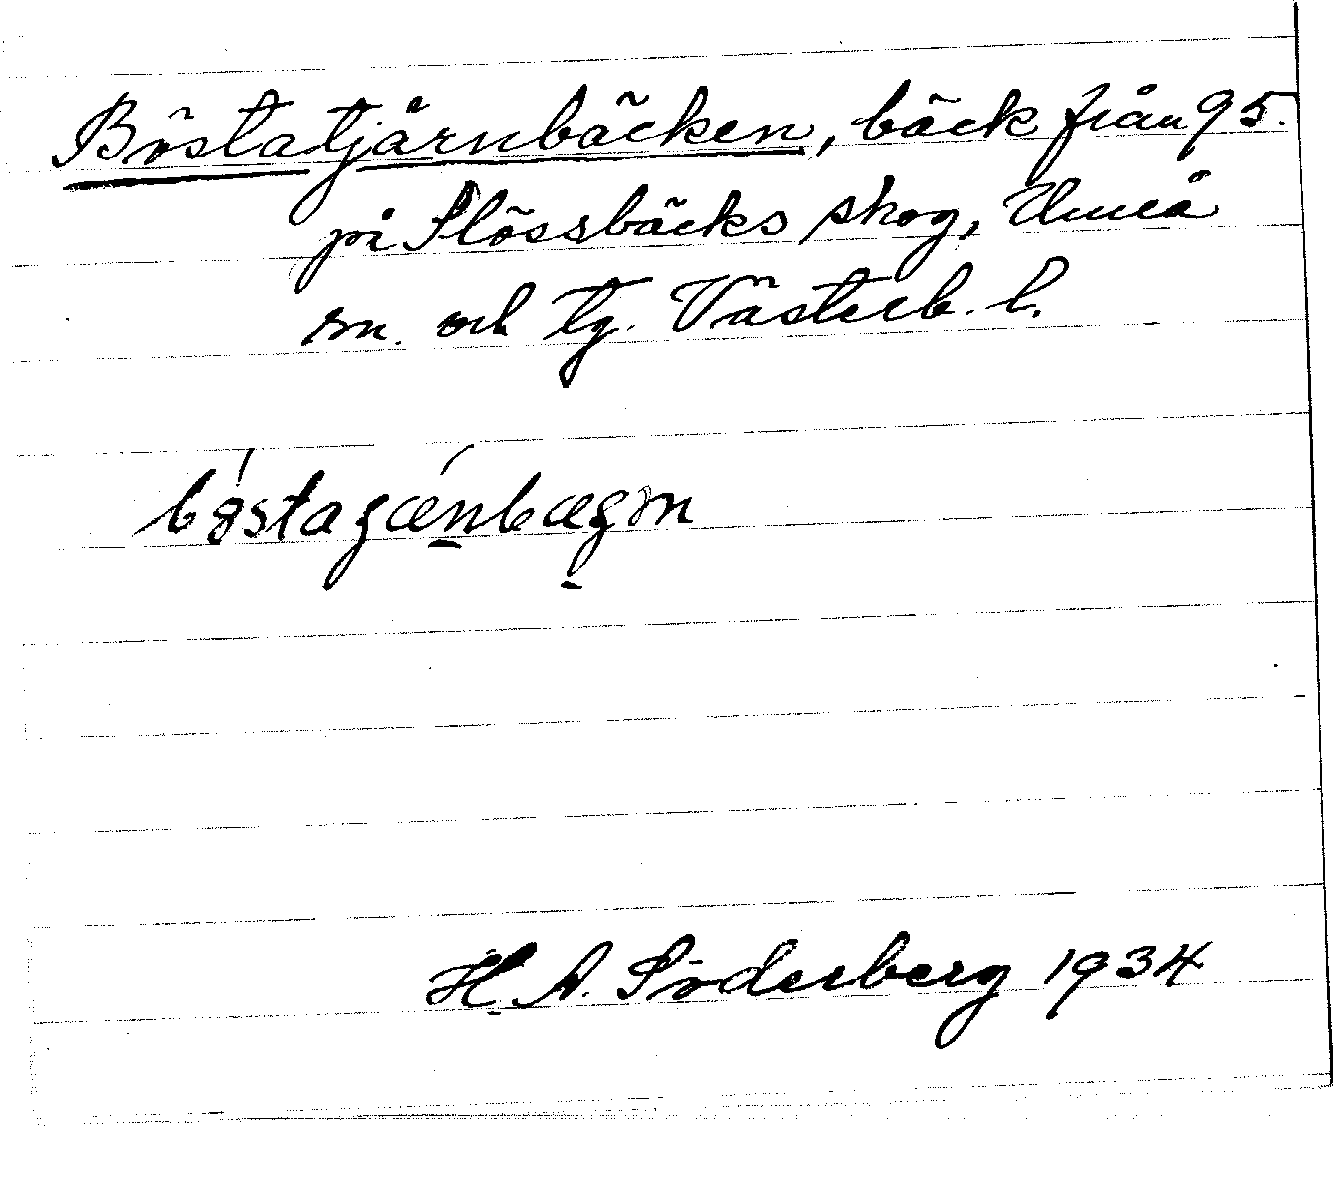 Böstatjärnbäcken, bäck från 95.
på Slössbäcks skog, Umeå
sn. och tg. Västerb. l.
H. A. Söderberg 1934